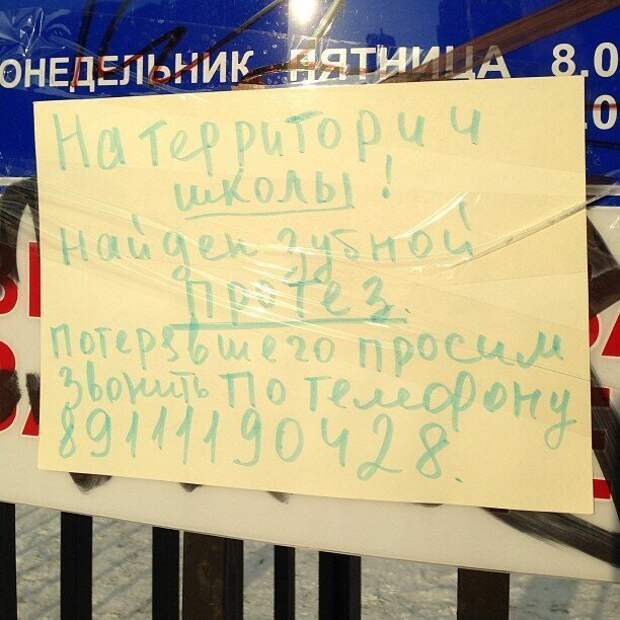 ОНЕДЕЛЬНИК ПЯТНИЦА 8.0
.0
На территории
школы!
найден зубной
протез.
потерявшего просим
звонить по телефону
89111190428.